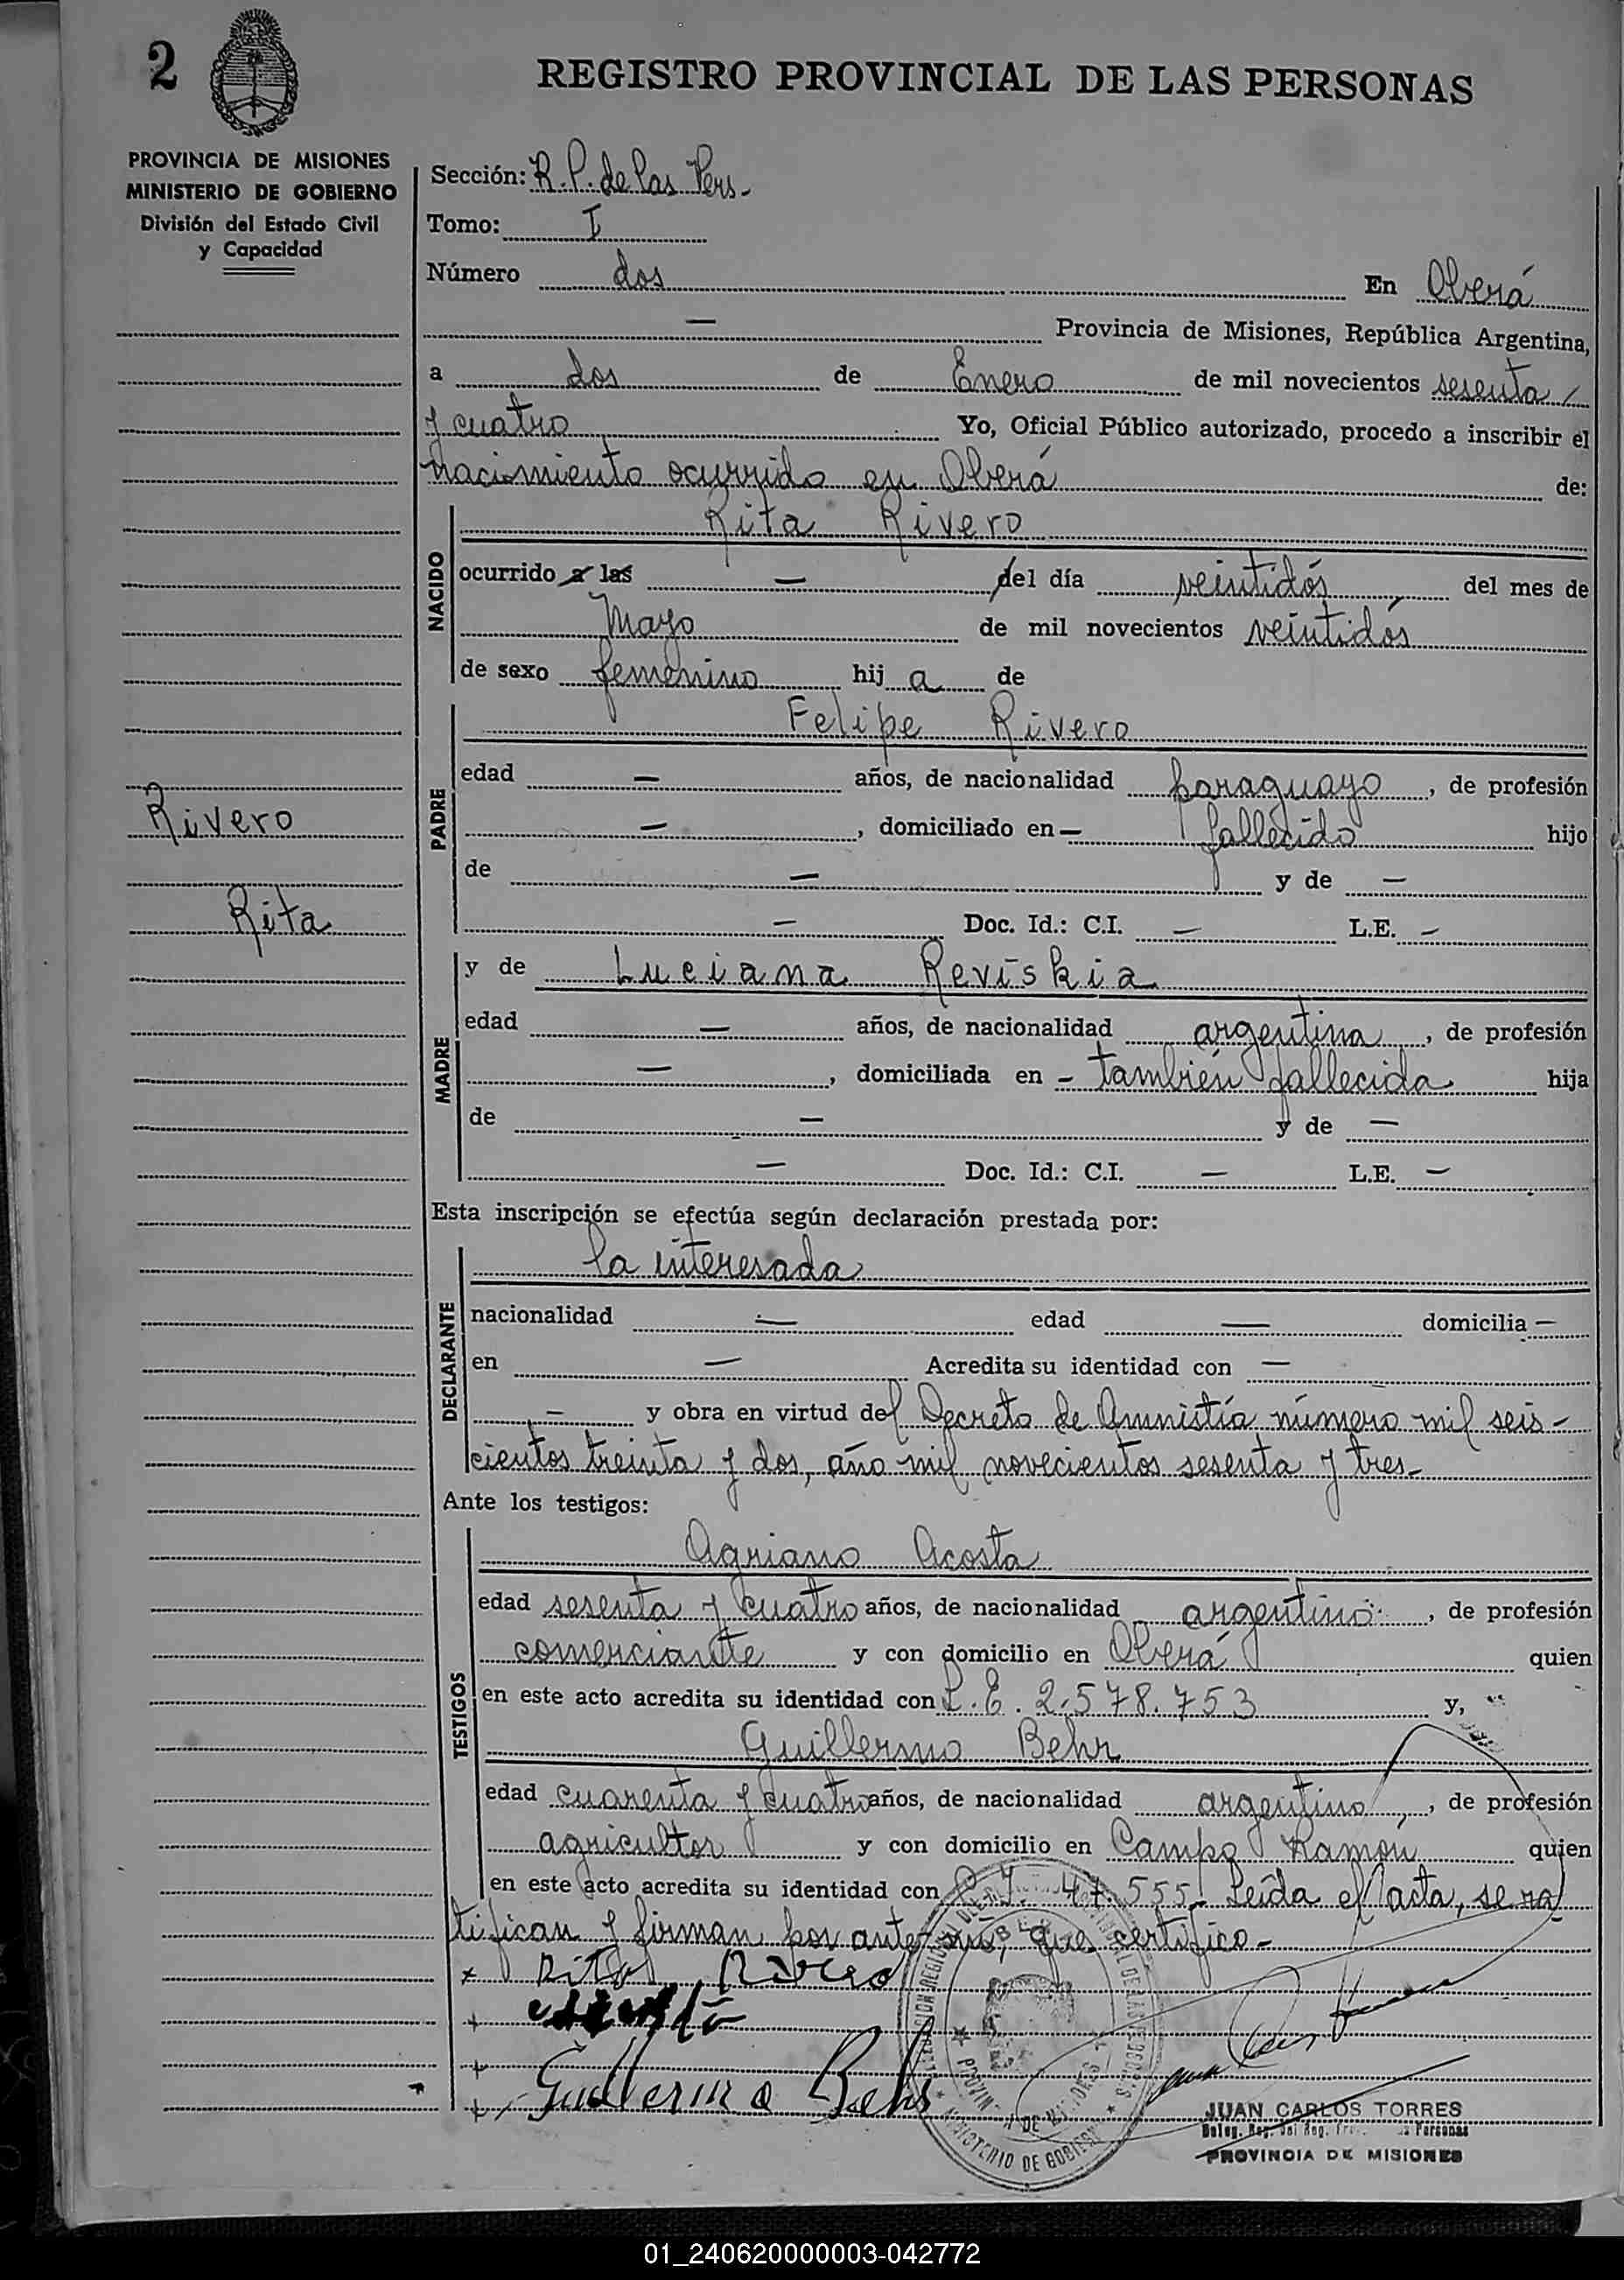 2
REGISTRO PROVINCIAL DE LAS PERSONAS
PROVINCIA DE MISIONES
MINISTERIO DE GOBIERNO
División del Estado Civil
y Capacidad
Sección: R.P. de las Pers.-
Tomo: I
Número dos En Oberá
— Provincia de Misiones, República Argentina,
a dos de Enero de mil novecientos sesenta /
y cuatro Yo, Oficial Público autorizado, procedo a inscribir el
nacimiento ocurrido en Oberá de:
NACIDO
Rita Rivero
ocurrido a las — del día veintidós, del mes de
Mayo de mil novecientos veintidós
de sexo femenino hij a de
PADRE
Felipe Rivero
edad — años, de nacionalidad paraguayo, de profesión
—, domiciliado en — fallecido hijo
de — y de —
— Doc. Id.: C.I. — L.E. —
Rivero
Rita
MADRE
y de Luciana Reviskia
edad — años, de nacionalidad argentina, de profesión
—, domiciliada en - también fallecida hija
de — y de —
— Doc. Id.: C.I. — L.E. —
Esta inscripción se efectúa según declaración prestada por:
DECLARANTE
la interesada
nacionalidad — edad — domicilia —
en — Acredita su identidad con —
— y obra en virtud del Decreto de Amnistía número mil seis-
cientos treinta y dos, año mil novecientos sesenta y tres-
Ante los testigos:
TESTIGOS
Agriano Acosta
edad sesenta y cuatro años, de nacionalidad argentino, de profesión
comerciante y con domicilio en Oberá quien
en este acto acredita su identidad con L.E. 2.578.753 y,
Guillermo Behr
edad cuarenta y cuatro años, de nacionalidad argentino, de profesión
agricultor y con domicilio en Campo Ramón quien
en este acto acredita su identidad con 555- Leída el acta, se ra
tifican y firman por ante mí, que certifico-
Rita Rivero
Guillermo Behr
PROVINCIA DE MISIONES
MINISTERIO DE GOBIERNO
JUAN CARLOS TORRES
PROVINCIA DE MISIONES
01_240620000003-042772